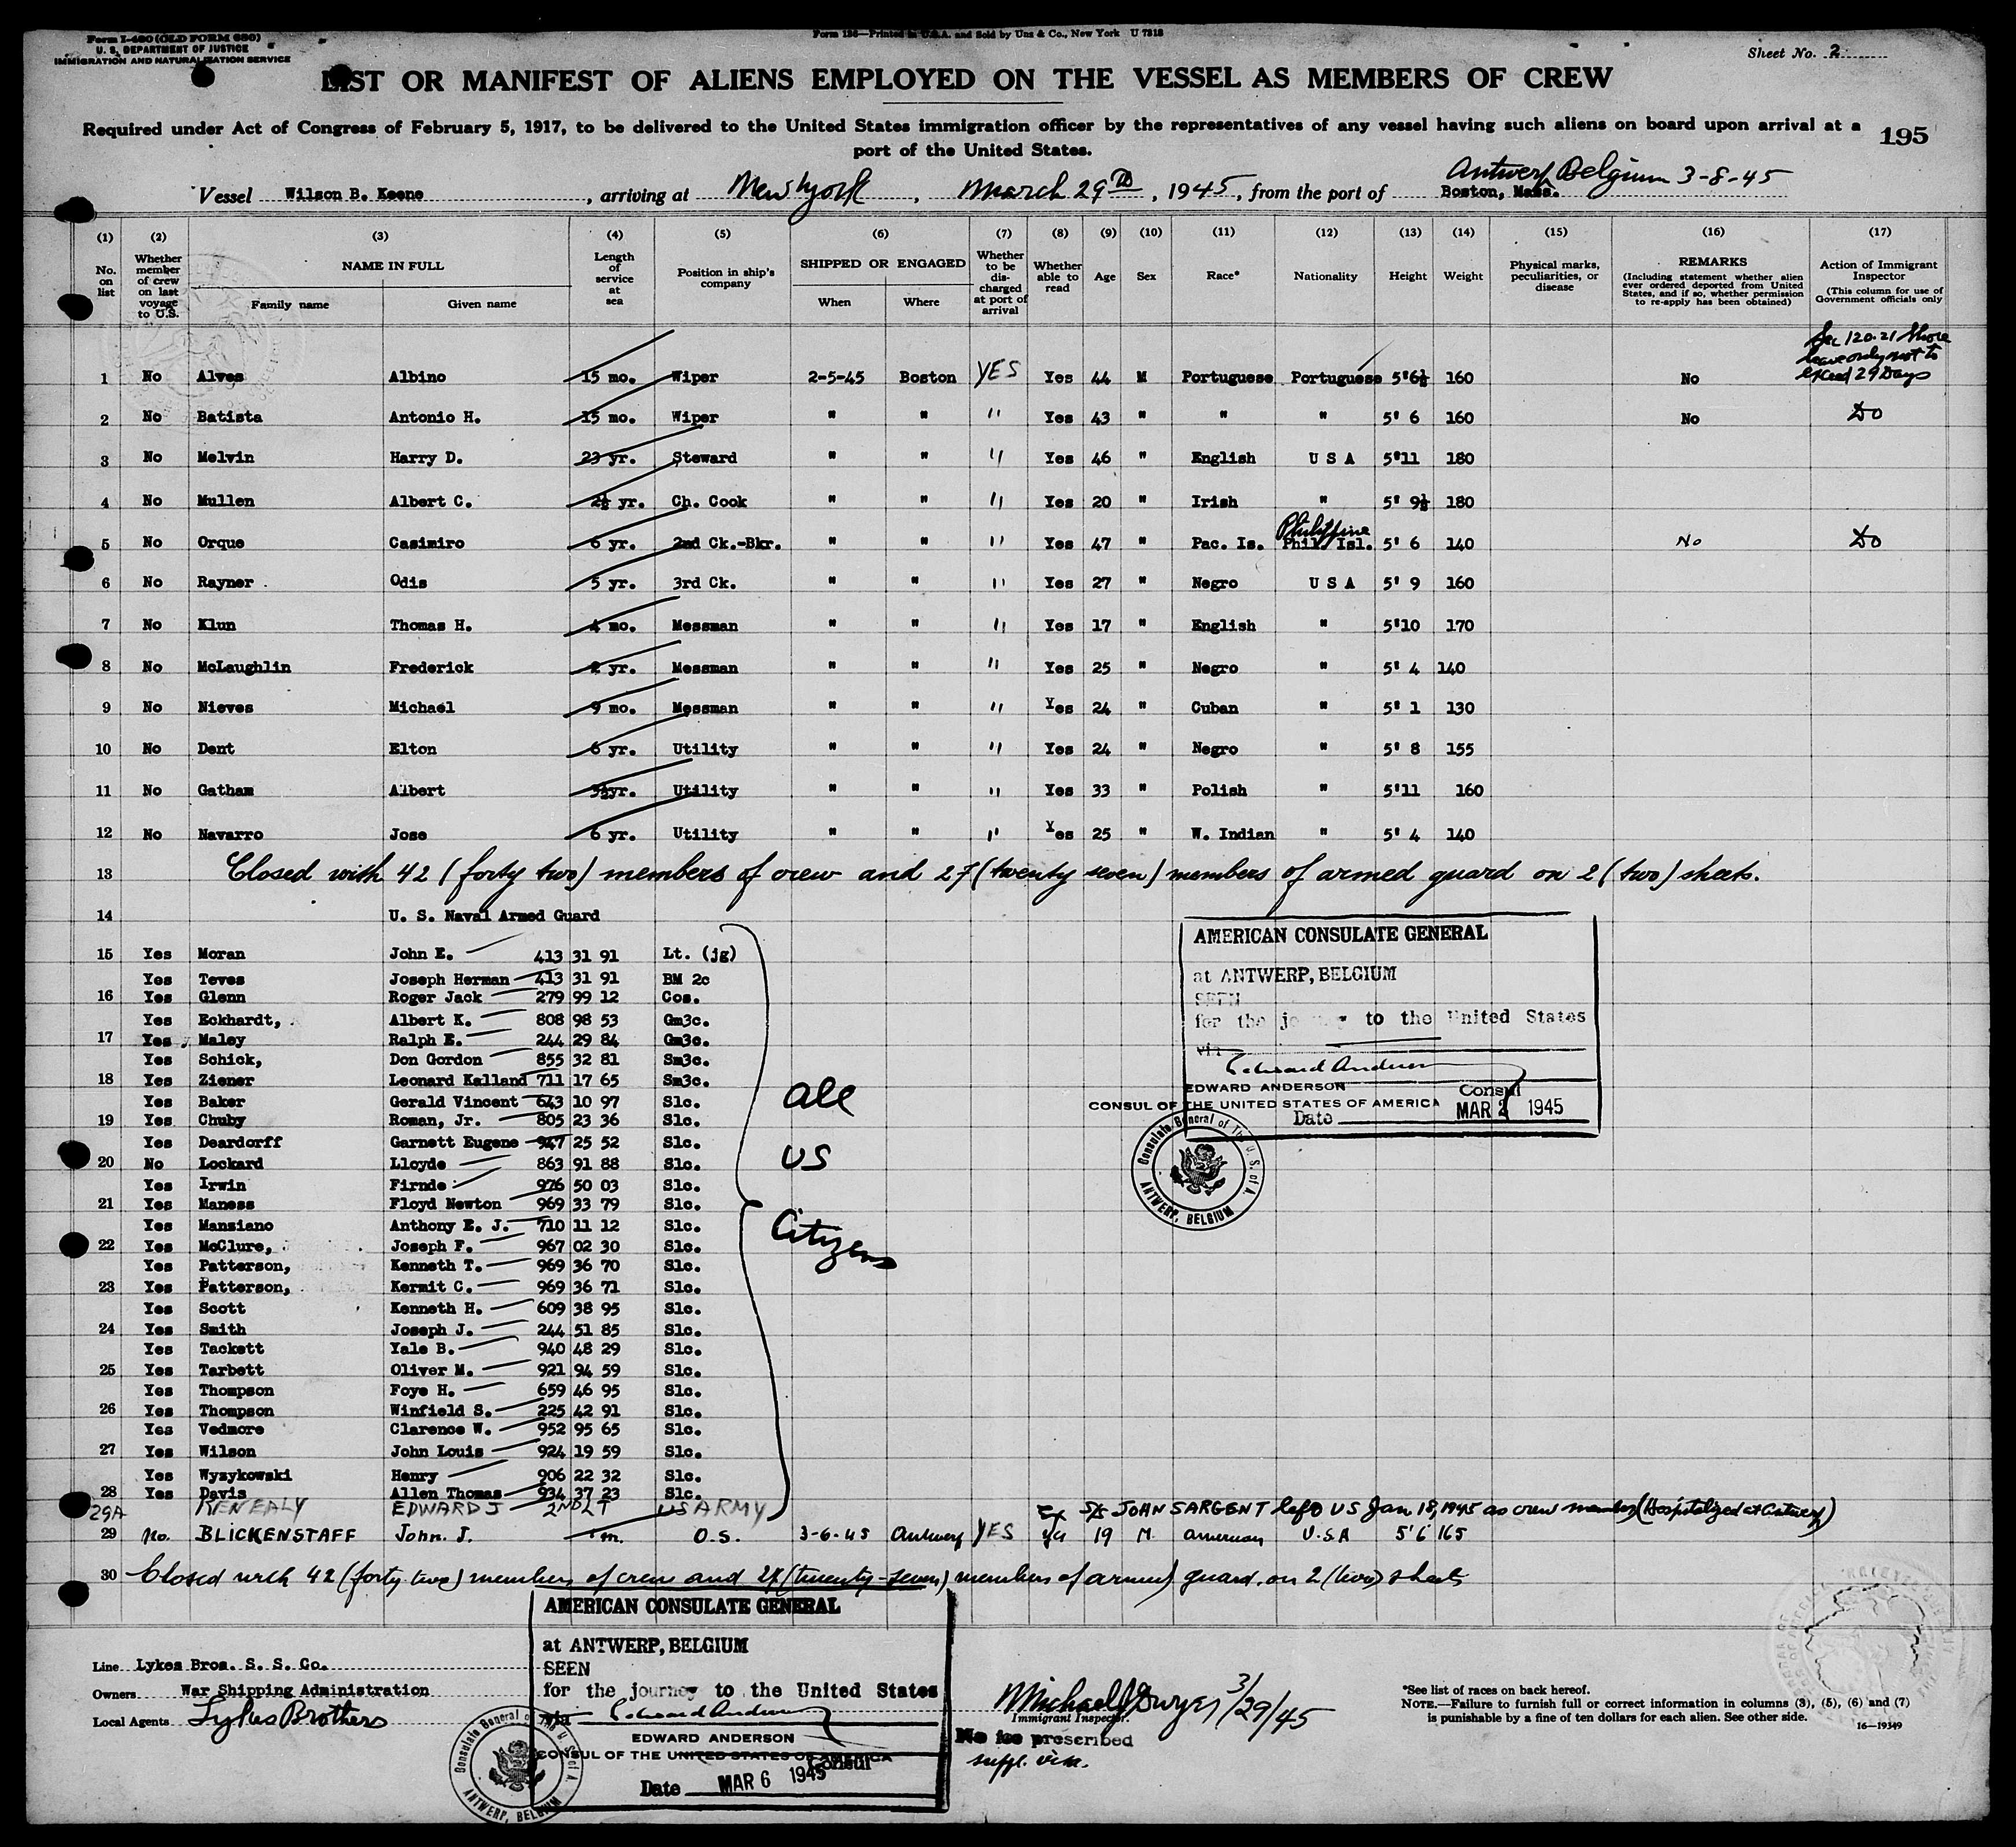 Form I-480 (OLD FORM 680)
U. S. DEPARTMENT OF JUSTICE
IMMIGRATION AND NATURALIZATION SERVICE
Form 136—Printed in U.S.A. and Sold by Unz & Co., New York U 7318
Sheet No. 2
LIST OR MANIFEST OF ALIENS EMPLOYED ON THE VESSEL AS MEMBERS OF CREW
Required under Act of Congress of February 5, 1917, to be delivered to the United States immigration officer by the representatives of any vessel having such aliens on board upon arrival at a
port of the United States.
195
Antwerp Belgium 3-8-45
Vessel Wilson B. Keene, arriving at New York, March 29th, 1945, from the port of Boston, Mass.
(1) (2) (3) (4) (5) (6) (7) (8) (9) (10) (11) (12) (13) (14) (15) (16) (17)
No. on list
Whether member of crew on last voyage to U.S.
NAME IN FULL
Family name Given name
Length of service at sea
Position in ship's company
SHIPPED OR ENGAGED
When Where
Whether to be discharged at port of arrival
Whether able to read
Age Sex Race* Nationality Height Weight
Physical marks, peculiarities, or disease
REMARKS
(Including statement whether alien ever ordered deported from United States, and if so, whether permission to re-apply has been obtained)
Action of Immigrant Inspector
(This column for use of Government officials only
Sec 120.21 Shore
leave only not to
exceed 29 Days
1 No Alves Albino 15 mo. Wiper 2-5-45 Boston YES Yes 44 M Portuguese Portuguese 5'6½ 160 No
2 No Batista Antonio H. 15 mo. Wiper " " " Yes 43 " " " 5' 6 160 No Do
3 No Melvin Harry D. 23 yr. Steward " " " Yes 46 " English U S A 5'11 180
4 No Mullen Albert C. 2½ yr. Ch. Cook " " " Yes 20 " Irish " 5' 9½ 180
Philippine
5 No Orque Casimiro 6 yr. 2nd Ck.-Bkr. " " " Yes 47 " Pac. Is. Phil. Isl. 5' 6 140 No Do
6 No Rayner Odis 5 yr. 3rd Ck. " " " Yes 27 " Negro U S A 5' 9 160
7 No Klun Thomas H. 4 mo. Messman " " " Yes 17 " English " 5'10 170
8 No McLaughlin Frederick 2 yr. Messman " " " Yes 25 " Negro " 5' 4 140
9 No Nieves Michael 9 mo. Messman " " " Yes 24 " Cuban " 5' 1 130
10 No Dent Elton 6 yr. Utility " " " Yes 24 " Negro " 5' 8 155
11 No Gatham Albert 3½yr. Utility " " " Yes 33 " Polish " 5'11 160
12 No Navarro Jose 6 yr. Utility " " " Yes 25 " W. Indian " 5' 4 140
13 Closed with 42 (forty two) members of crew and 27 (twenty seven) members of armed guard on 2 (two) sheets.
14 U. S. Naval Armed Guard
15 Yes Moran John E. 413 31 91 Lt. (jg)
Yes Teves Joseph Herman 413 31 91 BM 2c
16 Yes Glenn Roger Jack 279 99 12 Cox.
Yes Eckhardt, Albert K. 808 98 53 Gm3c.
17 Yes Maley Ralph E. 244 29 84 Gm3c.
Yes Schick, Don Gordon 855 32 81 Sm3c.
18 Yes Ziener Leonard Kalland 711 17 65 Sm3c.
Yes Baker Gerald Vincent 643 10 97 S1c.
19 Yes Chuby Roman, Jr. 805 23 36 S1c.
Yes Deardorff Garnett Eugene 947 25 52 S1c.
20 No Lockard Lloyde 863 91 88 S1c.
Yes Irwin Firnde 976 50 03 S1c.
21 Yes Maness Floyd Newton 969 33 79 S1c.
Yes Mansiano Anthony E. J. 710 11 12 S1c.
22 Yes McClure, Joseph F. 967 02 30 S1c.
Yes Patterson, Kenneth T. 969 36 70 S1c.
23 Yes Patterson, Kermit C. 969 36 71 S1c.
Yes Scott Kenneth H. 609 38 95 S1c.
24 Yes Smith Joseph J. 244 51 85 S1c.
Yes Tackett Yale B. 940 48 29 S1c.
25 Yes Tarbett Oliver M. 921 94 59 S1c.
Yes Thompson Foye H. 659 46 95 S1c.
26 Yes Thompson Winfield S. 225 42 91 S1c.
Yes Vedmore Clarence W. 952 95 65 S1c.
27 Yes Wilson John Louis 924 19 59 S1c.
Yes Wyzykowski Henry 906 22 32 S1c.
28 Yes Davis Allen Thomas 934 37 23 S1c.
All
US
Citizens
AMERICAN CONSULATE GENERAL
at ANTWERP, BELGIUM
SEEN
for the journey to the United States
via
Edward Anderson
EDWARD ANDERSON Consul
CONSUL OF THE UNITED STATES OF AMERICA
Date MAR 2 1945
Consulate General of The U. S. of A.
ANTWERP, BELGIUM
29A KENEALY EDWARD J 2ND LT US ARMY
Ex S/S JOHN SARGENT left US Jan 18, 1945 as crew member (Hospitalized at Antwerp)
29 No. BLICKENSTAFF John. J. m. O.S. 3-6-45 Antwerp YES Yes 19 M. American U.S.A 5'6 165
30 Closed with 42 (forty two) members of crew and 27 (twenty-seven) members of armed guard on 2 (two) sheets
AMERICAN CONSULATE GENERAL
at ANTWERP, BELGIUM
SEEN
for the journey to the United States
via Edward Anderson
EDWARD ANDERSON
CONSUL OF THE UNITED STATES OF AMERICA
Consul
Date MAR 6 1945
Consulate General of The U. S. of A.
ANTWERP, BELGIUM
Line Lykes Bros. S. S. Co.
Owners War Shipping Administration
Local Agents Lykes Brothers
Michael J Dwyer 3/29/45
Immigrant Inspector.
No fee prescribed
suppl. visa.
*See list of races on back hereof.
NOTE.—Failure to furnish full or correct information in columns (3), (5), (6) and (7)
is punishable by a fine of ten dollars for each alien. See other side.
16—19349